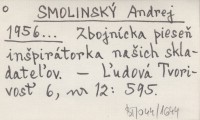 SMOLINSKÝ Andrej
1956... Zbojnícka pieseň
inšpirátorka našich skla-
dateľov. — Ľudová Tvori-
vosť 6, nr 12: 595.